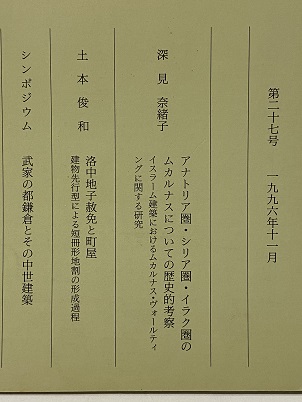 第二十七号　一九九六年十一月
深見奈緒子
アナトリア圏・シリア圏・イラク圏の
ムカルナスについての歴史的考察
イスラーム建築におけるムカルナス・ヴォールティ
ングに関する研究
土本俊和
洛中地子赦免と町屋
建物先行型による短冊形地割の形成過程
シンポジウム
武家の都鎌倉とその中世建築